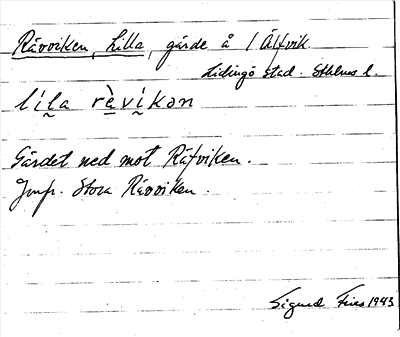 Rävviken, Lilla, gärde å 1 Älfvik
Lidingö stad. Sthlms l.
líla rèvíkən
Gärdet ned mot Räfviken.
Jmfr. Stora Rävviken.
Sigurd Fries 1943